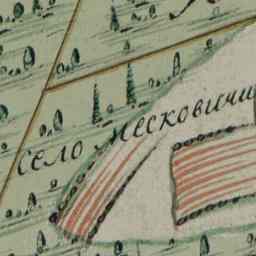 село Месковичи